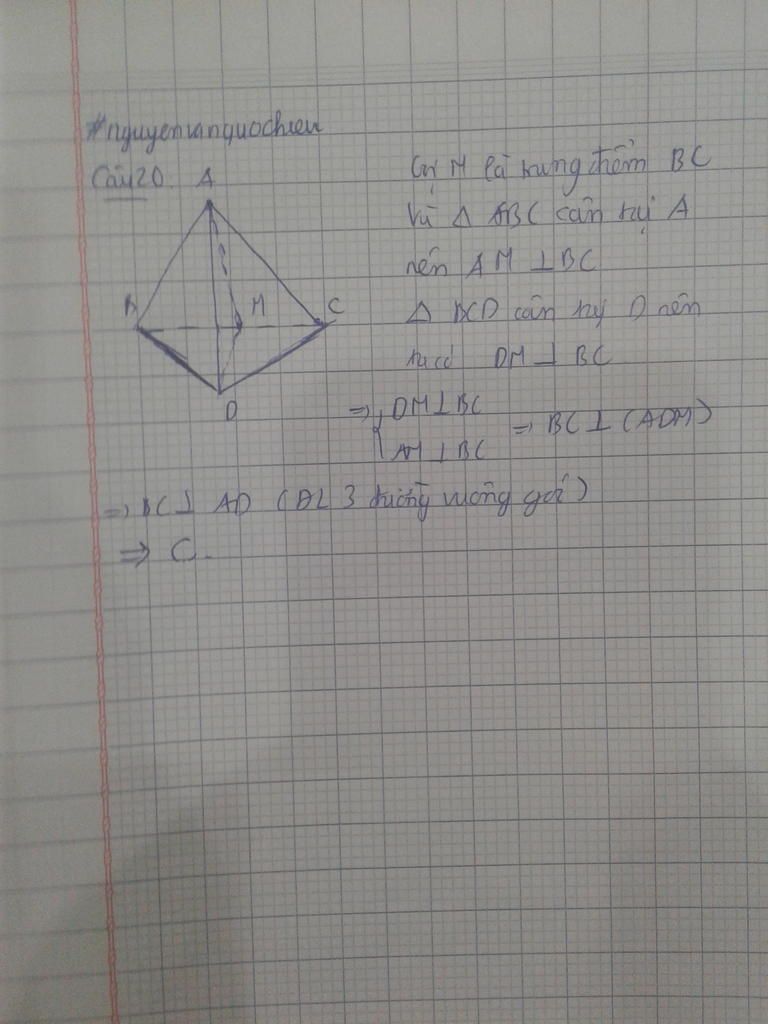 #nguyenvanquochieu
Câu 20.
A
B
M
C
D
Gọi M là trung điểm BC
Vì Δ ABC cân tại A
nên AM ⊥ BC
Δ BCD cân tại D nên
ta có DM ⊥ BC
=> { DM ⊥ BC
AM ⊥ BC => BC ⊥ (ADM)
=> BC ⊥ AD (ĐL 3 đường vuông góc)
=> C.